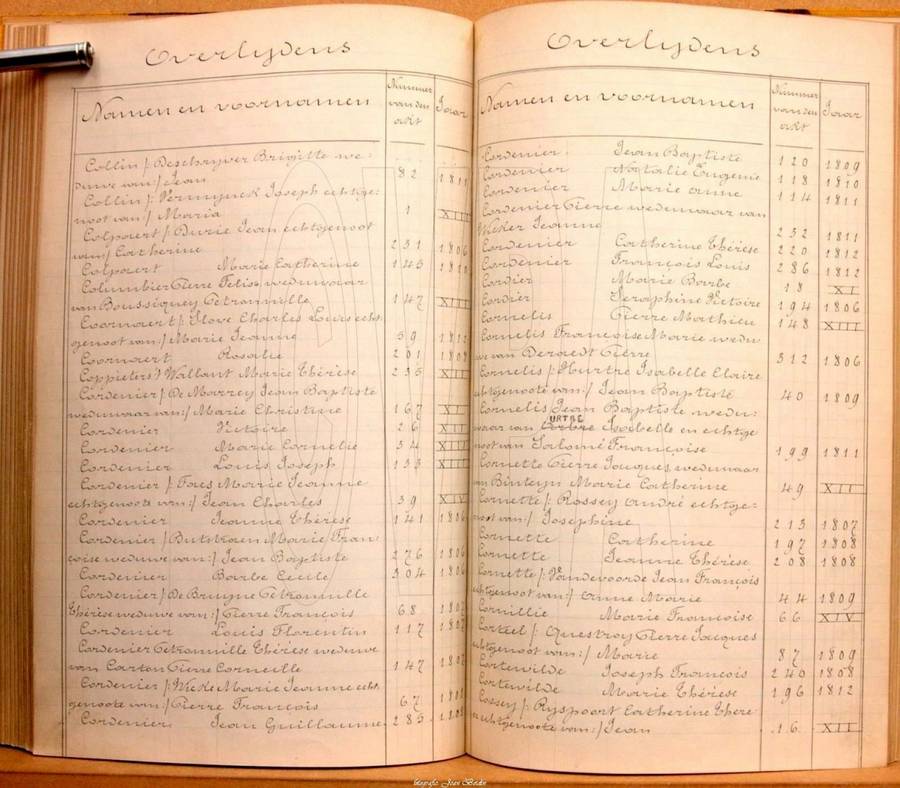 Overlijdens
Namen en voornamen
Nummer van den akt
Jaar
Collin /: Deschrijver Brigitte we-
duwe van:/ Jean 82 1811
Collin /: Vermynck Joseph echtge-
noot van:/ Maria 1 XIII
Colpaert /: Durie Jean echtgenoot
van:/ Catherine 231 1806
Colpaert Marie Catherine 143 1810
Columbier Pierre Felix weduwaar
van Boussiquey Petronnille 147 XIII
Coornaert /: Slove Charles Louis echt-
genoot van:/ Marie Jeanne 59 1812
Coornaert Rosalie 201 1808
Coppieters Wallant Marie Thérèse 235 XII
Cordenier /: De Marrey Jean Baptiste
weduwaar van:/ Marie Christine 167 XI
Cordenier Victoire 26 XII
Cordenier Marie Cornelie 34 XIII
Cordenier Louis Joseph 133 XIII
Cordenier /: Faes Marie Jeanne
echtgenoote van:/ Jean Charles 39 XIV
Cordenier Jeanne Thérèse 141 1806
Cordenier /: Butstraen Marie Fran-
çoise weduwe van:/ Jean Baptiste 276 1806
Cordenier Barbe Cecile 304 1806
Cordenier /: De Bruyne Petronnille
Thérèse weduwe van:/ Pierre François 68 1807
Cordenier Louis Florentin 117 1807
Cordenier Petronnille Thérèse weduwe
van Carton Pierre Corneille 147
Cordenier /: Wicke Marie Jeanne echt-
genoote van:/ Pierre François 67
Cordenier Jean Guillaume 285 1808
Overlijdens
Namen en voornamen
Nummer van den akt
Jaar
Cordenier Jean Baptiste 120 1809
Cordenier Natalie Eugenie 118 1810
Cordenier Marie Anne 114 1811
Cordenier Pierre weduwaar van
Wicker Jeanne 232 1811
Cordenier Catherine Thérèse 220 1812
Cordenier François Louis 286 1812
Cordier Marie Barbe 18 XI
Cordier Seraphine Victoire 194 1806
Cornelis Pierre Mathieu 148 XIII
Cornelis Françoise Marie wedu-
we van Deraedt Pierre 312 1806
Cornelis /: Hurthe Isabelle Claire
echtgenoote van:/ Jean Baptiste 40 1809
Cornelis Jean Baptiste wedu-
URTRE
waar van Isabelle en echtge
noot van Salomé Françoise 199 1811
Cornette Pierre Jacques, weduwaar
van Binteyn Marie Catherine 49 XII
Cornette /: Rossey André echtge-
noot van:/ Josephine 213 1807
Cornette Catherine 197 1808
Cornette Jeanne Thérèse 208 1808
Cornette /: Vandevoorde Jean François
echtgenoot van:/ Anne Marie 44 1809
Cornillie Marie Françoise 66 XIV
Corteel /: Questroy Pierre Jacques
echtgenoot van:/ Marie 87 1809
Cortewilde Joseph François 240 1808
Cortewilde Marie Thérèse 196 1812
Cossey /: Ryspoort Catherine Thérè
se echtgenoote van:/ Jean 16 XII
fotografie Jean Bordin